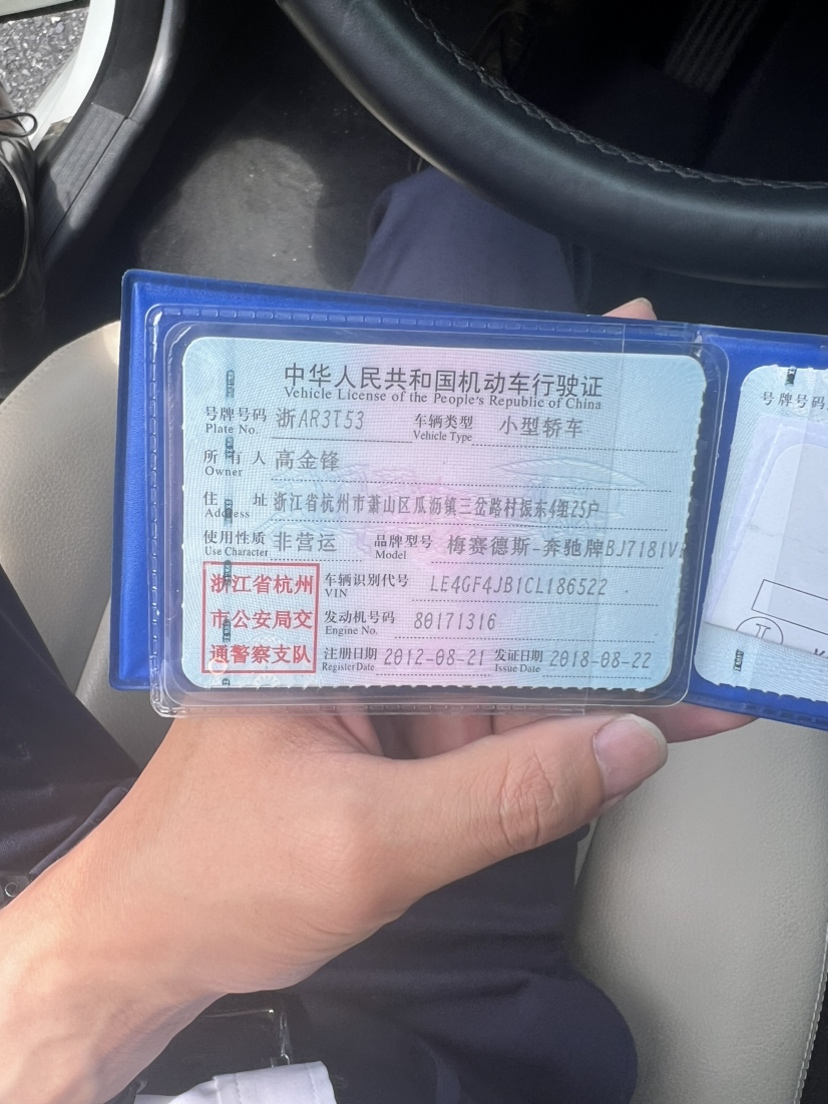 中华人民共和国机动车行驶证
Vehicle License of the People's Republic of China
号牌号码 浙AR3T53 车辆类型 小型轿车
Plate No. Vehicle Type
所有人 高金锋
Owner
住址 浙江省杭州市萧山区瓜沥镇三岔路村振东4组25户
Address
使用性质 非营运 品牌型号 梅赛德斯-奔驰牌BJ7181V
Use Character Model
浙江省杭州 车辆识别代号 LE4GF4JB1CL186522
VIN
市公安局交 发动机号码 80171316
Engine No.
通警察支队 注册日期 2012-08-21 发证日期 2018-08-22
Register Date Issue Date
号牌号码